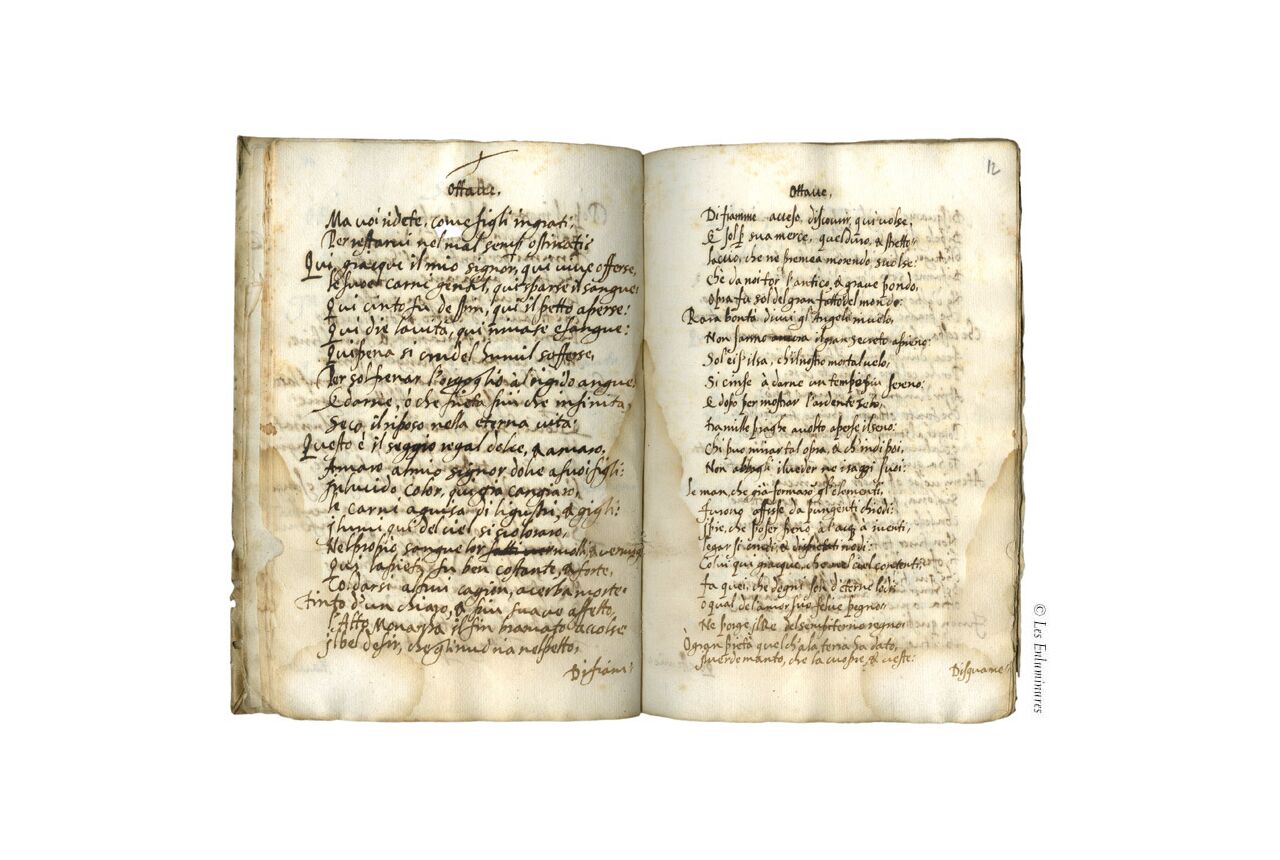 Ottaue.
Ma voi ridete, come figli ingrati;
Per restarui nel mal sempr ostinati:
Qui, giacque il mio signor, qui vive offerse,
le sue carni gentil, qui sparse il sangue:
Qui cinto fu de spin, qui il petto aperse:
Qui diè la vita, qui rimase esangue:
Qui pena si crudel humil sofferse,
Per sol frenar l'orgoglio al rigido angue,
E darne, ò che pietà più che infinita,
Seco, il riposo nella eterna vita:
Questo è il seggio regal dolce, & amaro,
Amaro al mio signor dolce a suoi figli:
In lucido color, qui già cangiaro,
le carni a guisa di ligustri, & gigli:
I lumi qui del ciel si scoloraro,
Nel proprio sangue lor fatti vermigli
Qui la pietà fu ben costante, & forte,
Co darsi altrui cagion, acerba morte:
Tinto d'un chiaro, & più suave affetto,
l'Alto Monarca il fin bramato accolse
il bel desir, che gli nudria nel petto,
Di fiam:
12
Ottaue.
Di fiamme acceso, discourir qui volse:
E sol per sua mercè, quel duro, & stretto
laccio, che ne premea morendo, sciolse:
Che da noi tor l'antico, & graue pondo,
Opra fù sol del gran fattor del mondo:
Rara bontà di cui gl'Angeli in cielo,
Non sanno il gran secreto apieno:
Sol ei si sa, ch'il nostro mortal velo,
Si cinse à darne un tempo più sereno:
E dopo per mostrar l'ardente zelo,
tra mille piaghe auolto aperse il seno:
Chi può mirar tal opra, & ch'indi poi,
Non abbagli il veder ne i raggi suoi:
le man, che già formaro gl'elementi,
furono affisse da pungenti chiodi:
I piè, che poser freno, a l'acq à i venti,
legar si crudi, & dispietati nodi:
Colui qui giacque, che nel ciel contenti,
fa quei, che degni son d'eterne lodi:
O qual del amor suo felice pegno,
Ne porge il Re del sempiterno regno:
O gran pietà quel ch'a la terra ha dato,
il verde manto, che la cuopre, & veste:
Di squame
© Les Enluminures